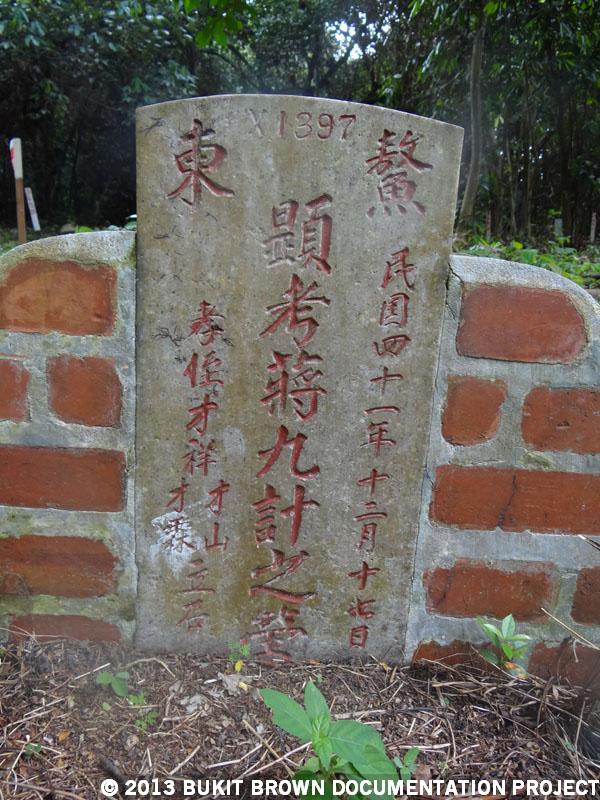 X1397
鰲東
民国四十一年十二月十七日
顯考蔣九計之墓
孝侄才祥才山才霖立石
© 2013 BUKIT BROWN DOCUMENTATION PROJECT